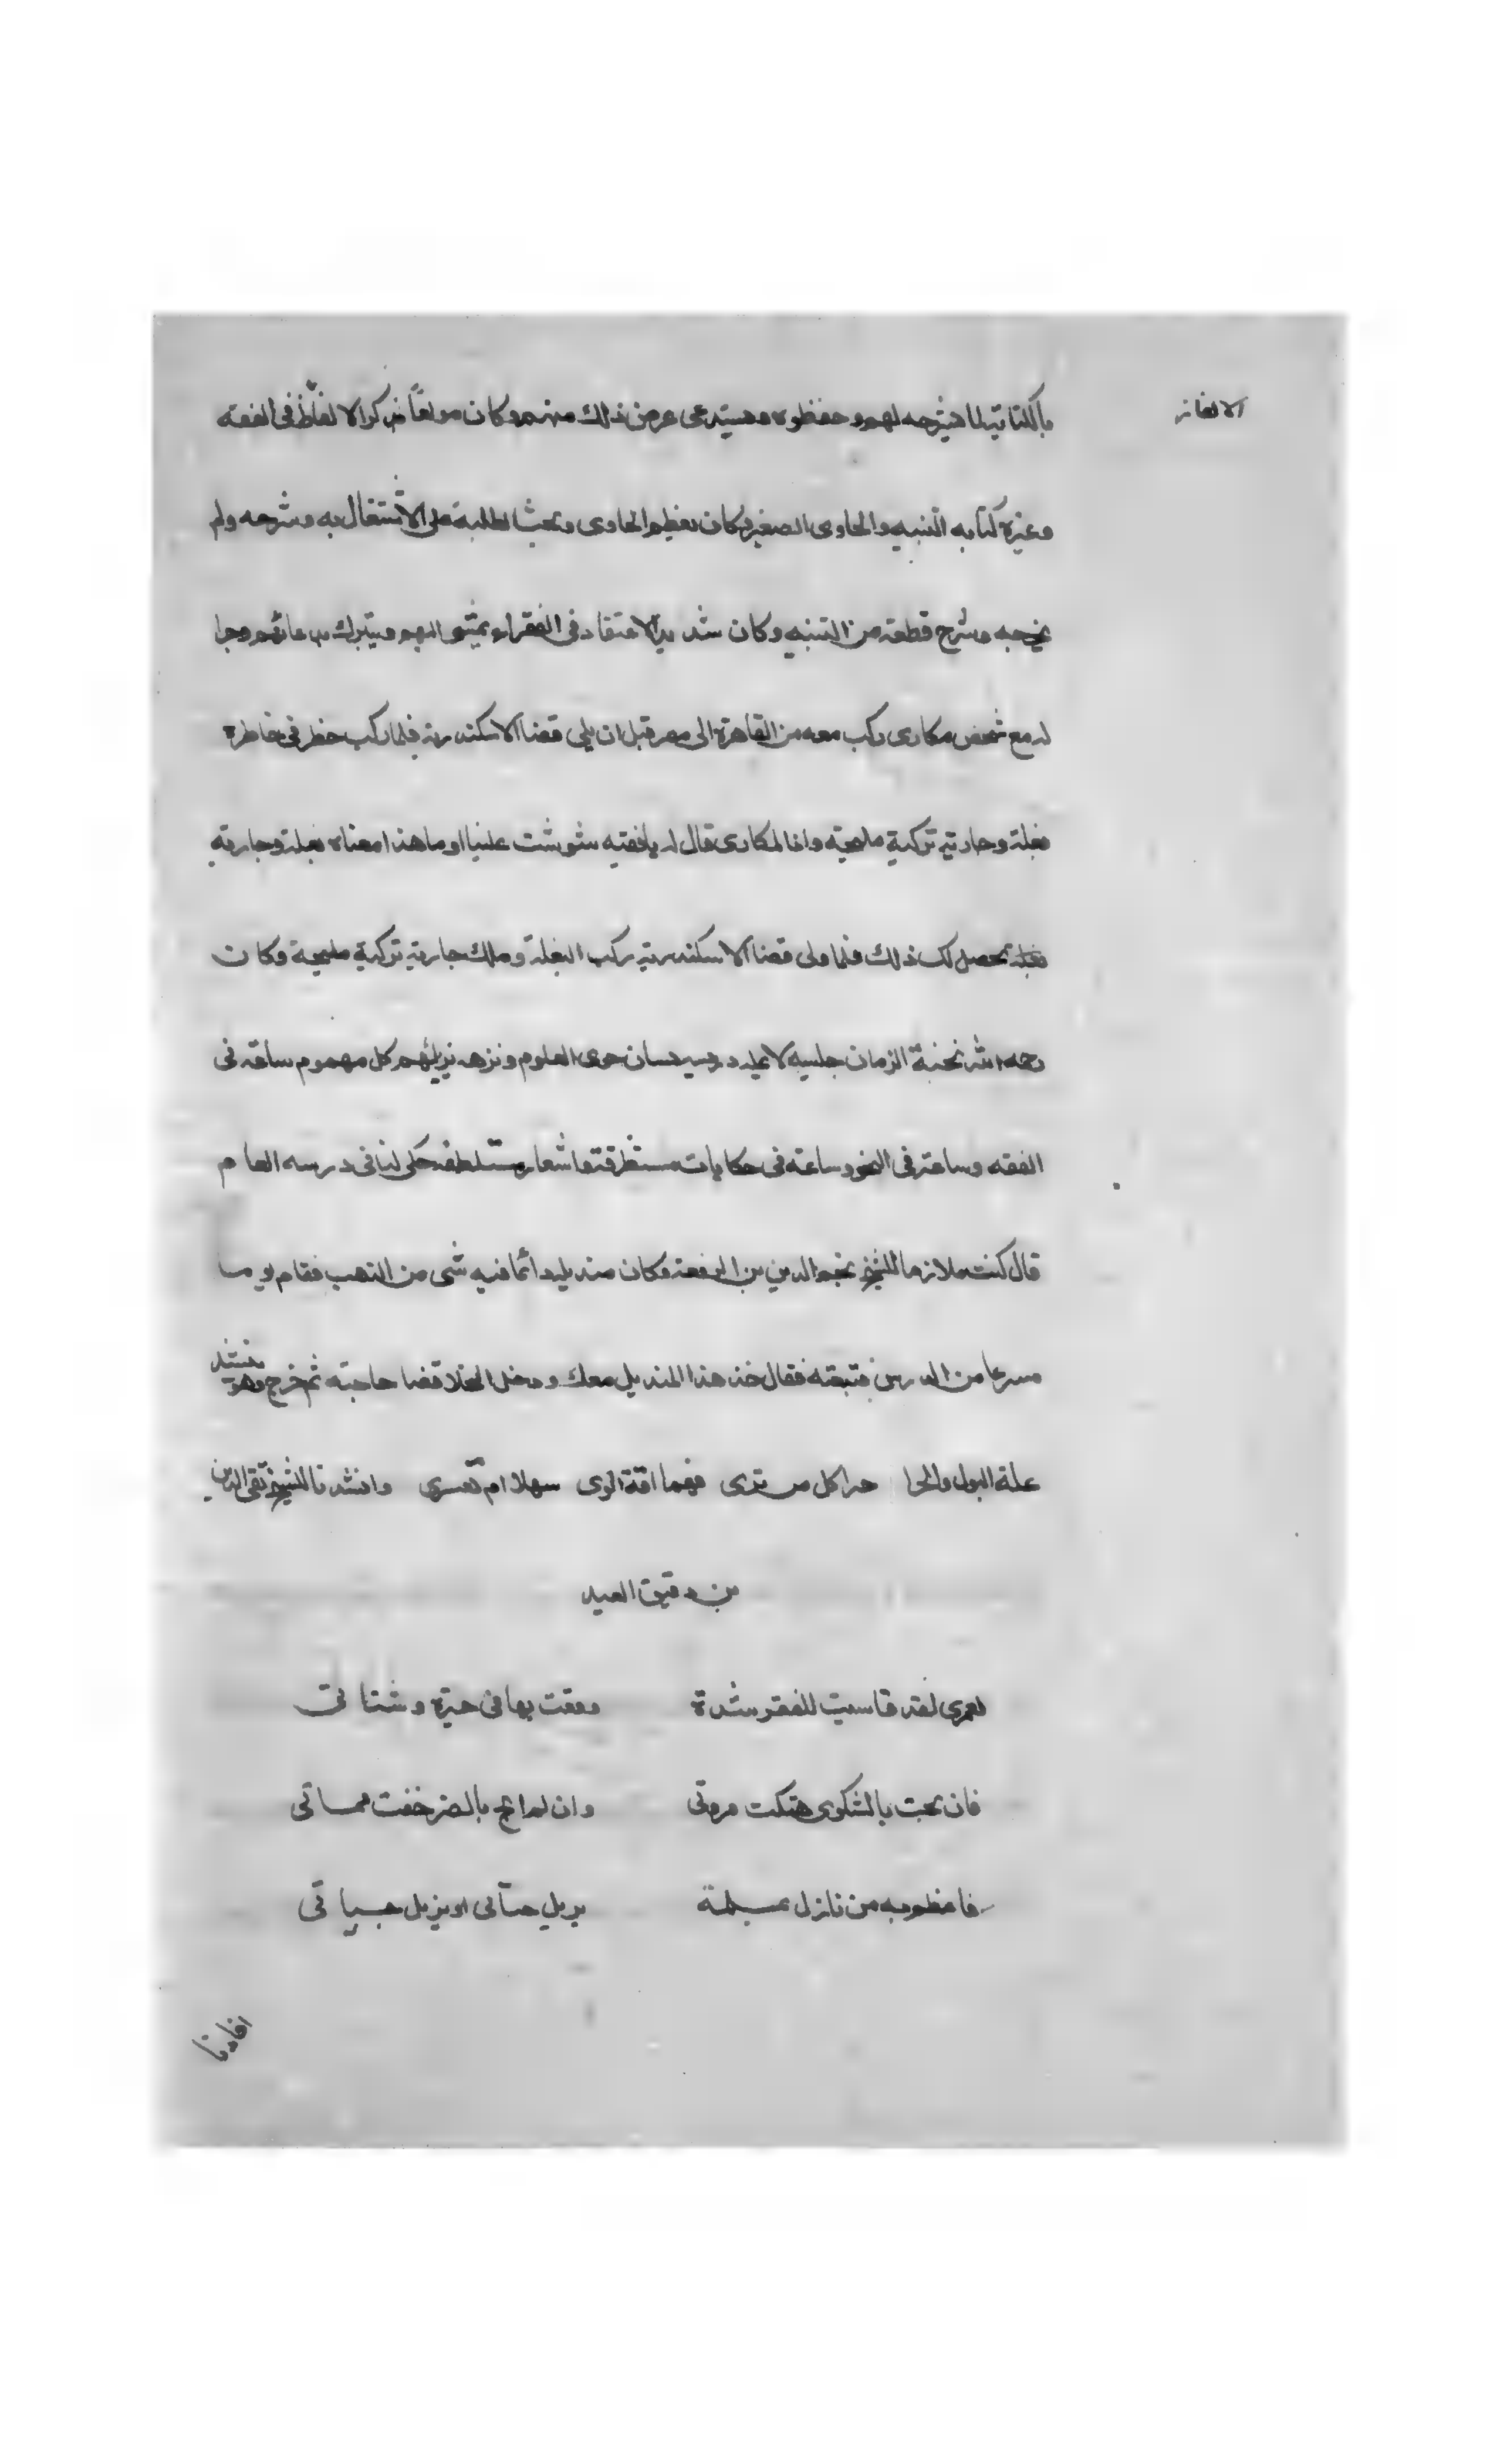 بالكتابة لما يشرحه لهم وحفظوه ويستدعى عرض ذلك منهم وكان مولعا بذكر الالفاظ فى الفقه
الالغاز
وغيره كتابه التنبيه والحاوى الصغير وكان يعظم الحاوى ويحث الطلبة على الاشتغال به وشرحه ولم
يخرجه وشرح قطعة من التنبيه وكان شديد الاعتقاد فى الفقراء يمشى اليهم ويتبرك بدعائهم وجرا
له مع شخص مكارى ركب معه من القاهرة الى مصر قبل ان يلى قضا الاسكندرية فلما ركب خطر فى خاطره
بغلة وجارية تركية مليحة واذا المكارى قال له يا فقيه شوشت علينا او ما هذا معناه بغلة وجارية
بغلة يحصل لك ذلك فلما ولى قضا الاسكندرية ركب البغلة وملك جارية تركية مليحة وكان
رحمه الله نخبة الزمان جليسه لا يمله حوى العلوم ونزهه نزيلهم كل مهموم ساعة فى
الفقه وساعة فى النحو وساعة فى حكايات مستظرفة واشعار مستلطفة حكى لنا فى درسه العام
قال كنت ملازما للشيخ نجم الدين بن الرفعة وكان منديله دائما فيه شى من الذهب فقام يوما
مسرعا من الدرس فتبعته فقال خذ هذا المنديل معك ودخل الخلا قضا حاجته ثم خرج وهو ينشد
علة البول والخرا حيرا كل من ترى فهما افة الورى سهلا ام تعسرى وانشدنا للشيخ تقى الدين
بن دقيق العيد
لعمرى لقد قاسيت للفقر شدة وقعت بها فى حيرة وشتاتى
فان بحت بالشكوى هتكت مروتى وان لم ابح بالضر خفت مماتى
فاعظم به من نازل بملمة يزيل حيائى او يزيل حياتى
افادنا